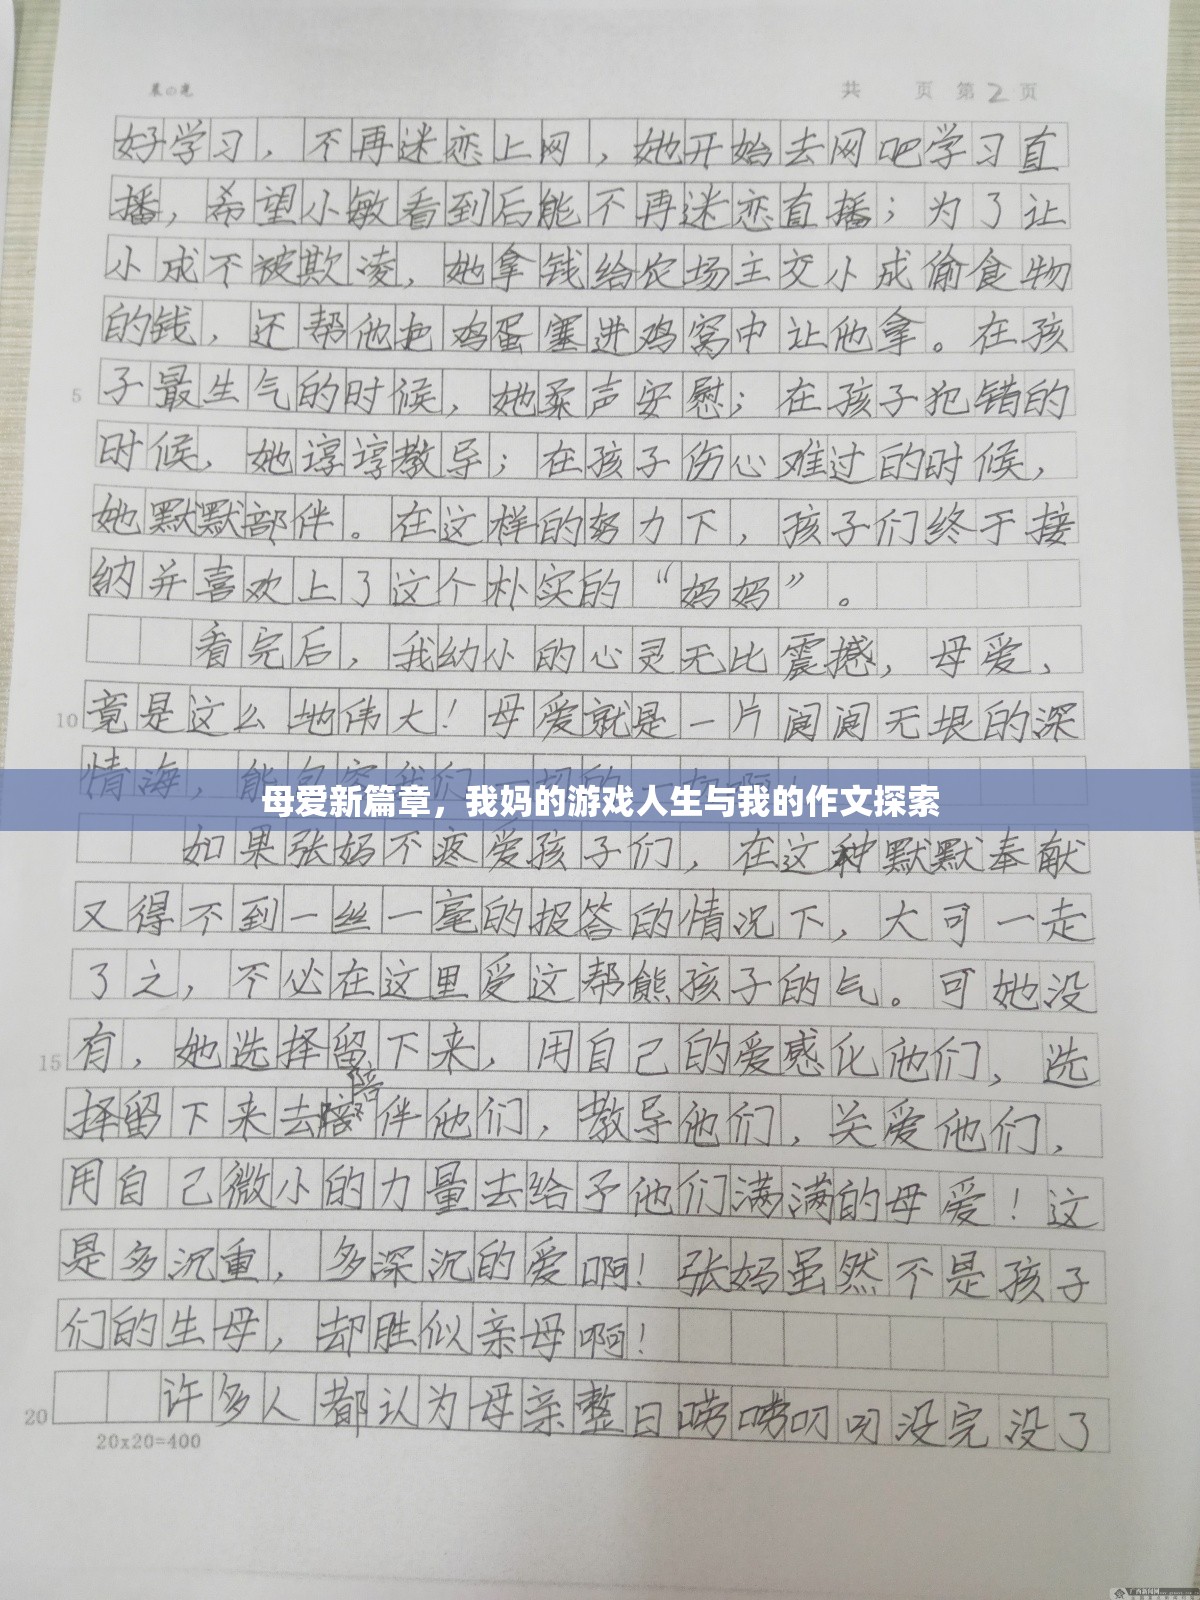 晨光
共 页 第2页
好学习，不再迷恋上网，她开始去网吧学习直
播，希望小敏看到后能不再迷恋直播；为了让
小成不被欺凌，她拿钱给农场主交小成偷食物
的钱，还帮他把鸡蛋塞进鸡窝中让他拿。在孩
5 子最生气的时候，她柔声安慰；在孩子犯错的
时候，她谆谆教导；在孩子伤心难过的时候，
她默默部伴。在这样的努力下，孩子们终于接
纳并喜欢上了这个朴实的“妈妈”。
看完后，我幼小的心灵无比震撼，母爱，
10 竟是这么地伟大！母爱就是一片阔阔无垠的深
情海，能包容我们一切的一切啊！
母爱新篇章，我妈的游戏人生与我的作文探索
如果张妈不疼爱孩子们，在这种默默奉献
又得不到一丝一毫的报答的情况下，大可一走
了之，不必在这里受这帮熊孩子的气。可她没
15 有，她选择留下来，用自己的爱感化他们，选
择留下来去陪伴他们，教导他们，关爱他们，
用自己微小的力量去给予他们满满的母爱！这
是多沉重，多深沉的爱啊！张妈虽然不是孩子
们的生母，却胜似亲母啊！
20 许多人都认为母亲整日唠唠叨叨没完没了
20x20=400
广西新闻网